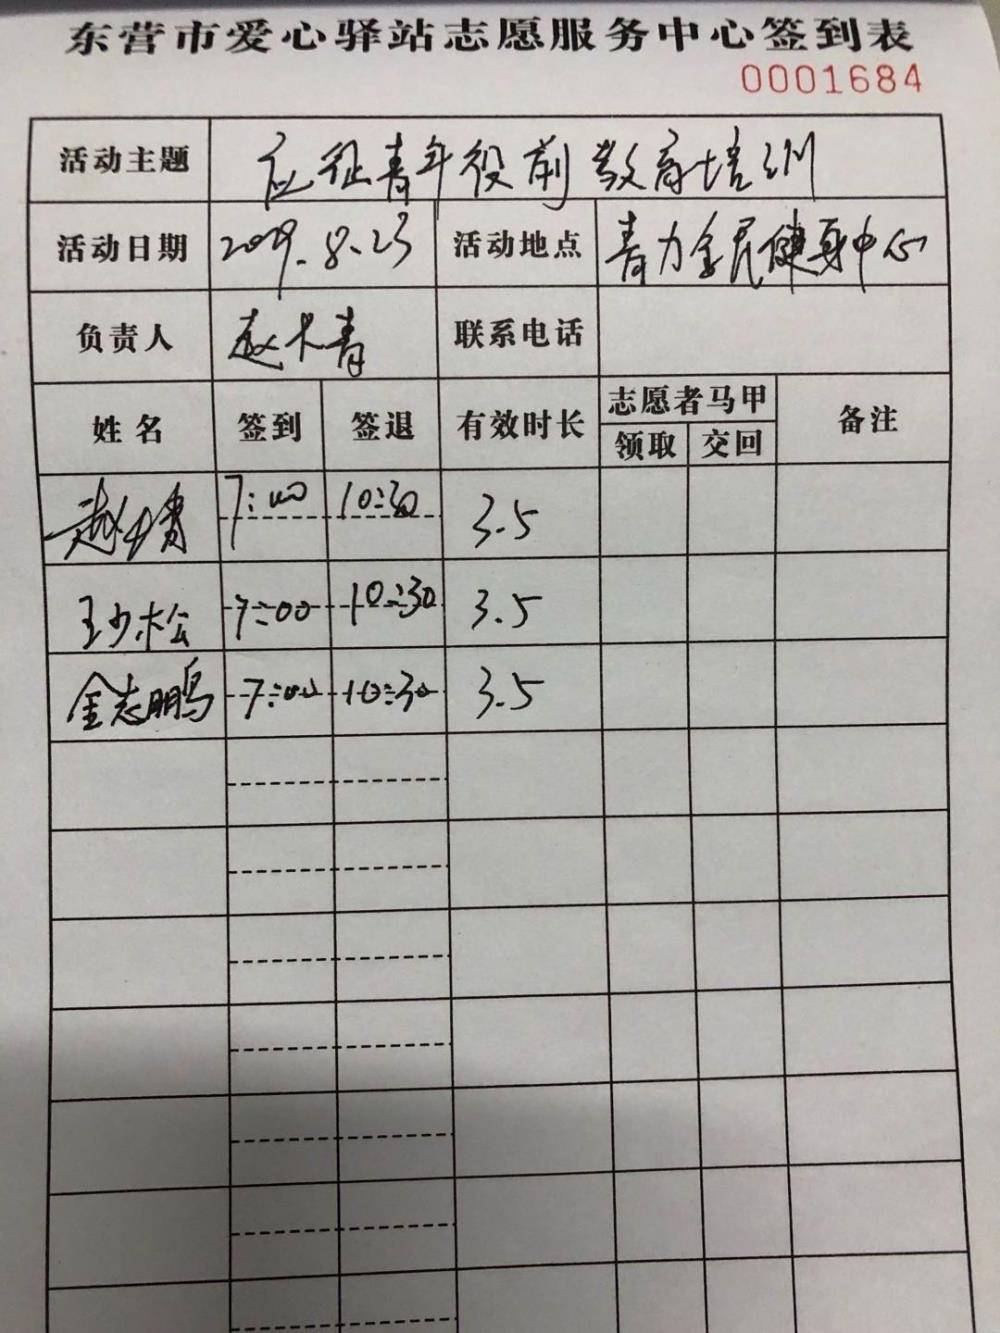 东营市爱心驿站志愿服务中心签到表
0001684
活动主题 应征青年役前教育培训
活动日期 2019.8.23 活动地点 青力全民健身中心
负责人 赵大青 联系电话
姓名 签到 签退 有效时长 志愿者马甲 备注
领取 交回
7:00 10:30 3.5
王少松 7:00 10:30 3.5
金志鹏 7:00 10:30 3.5